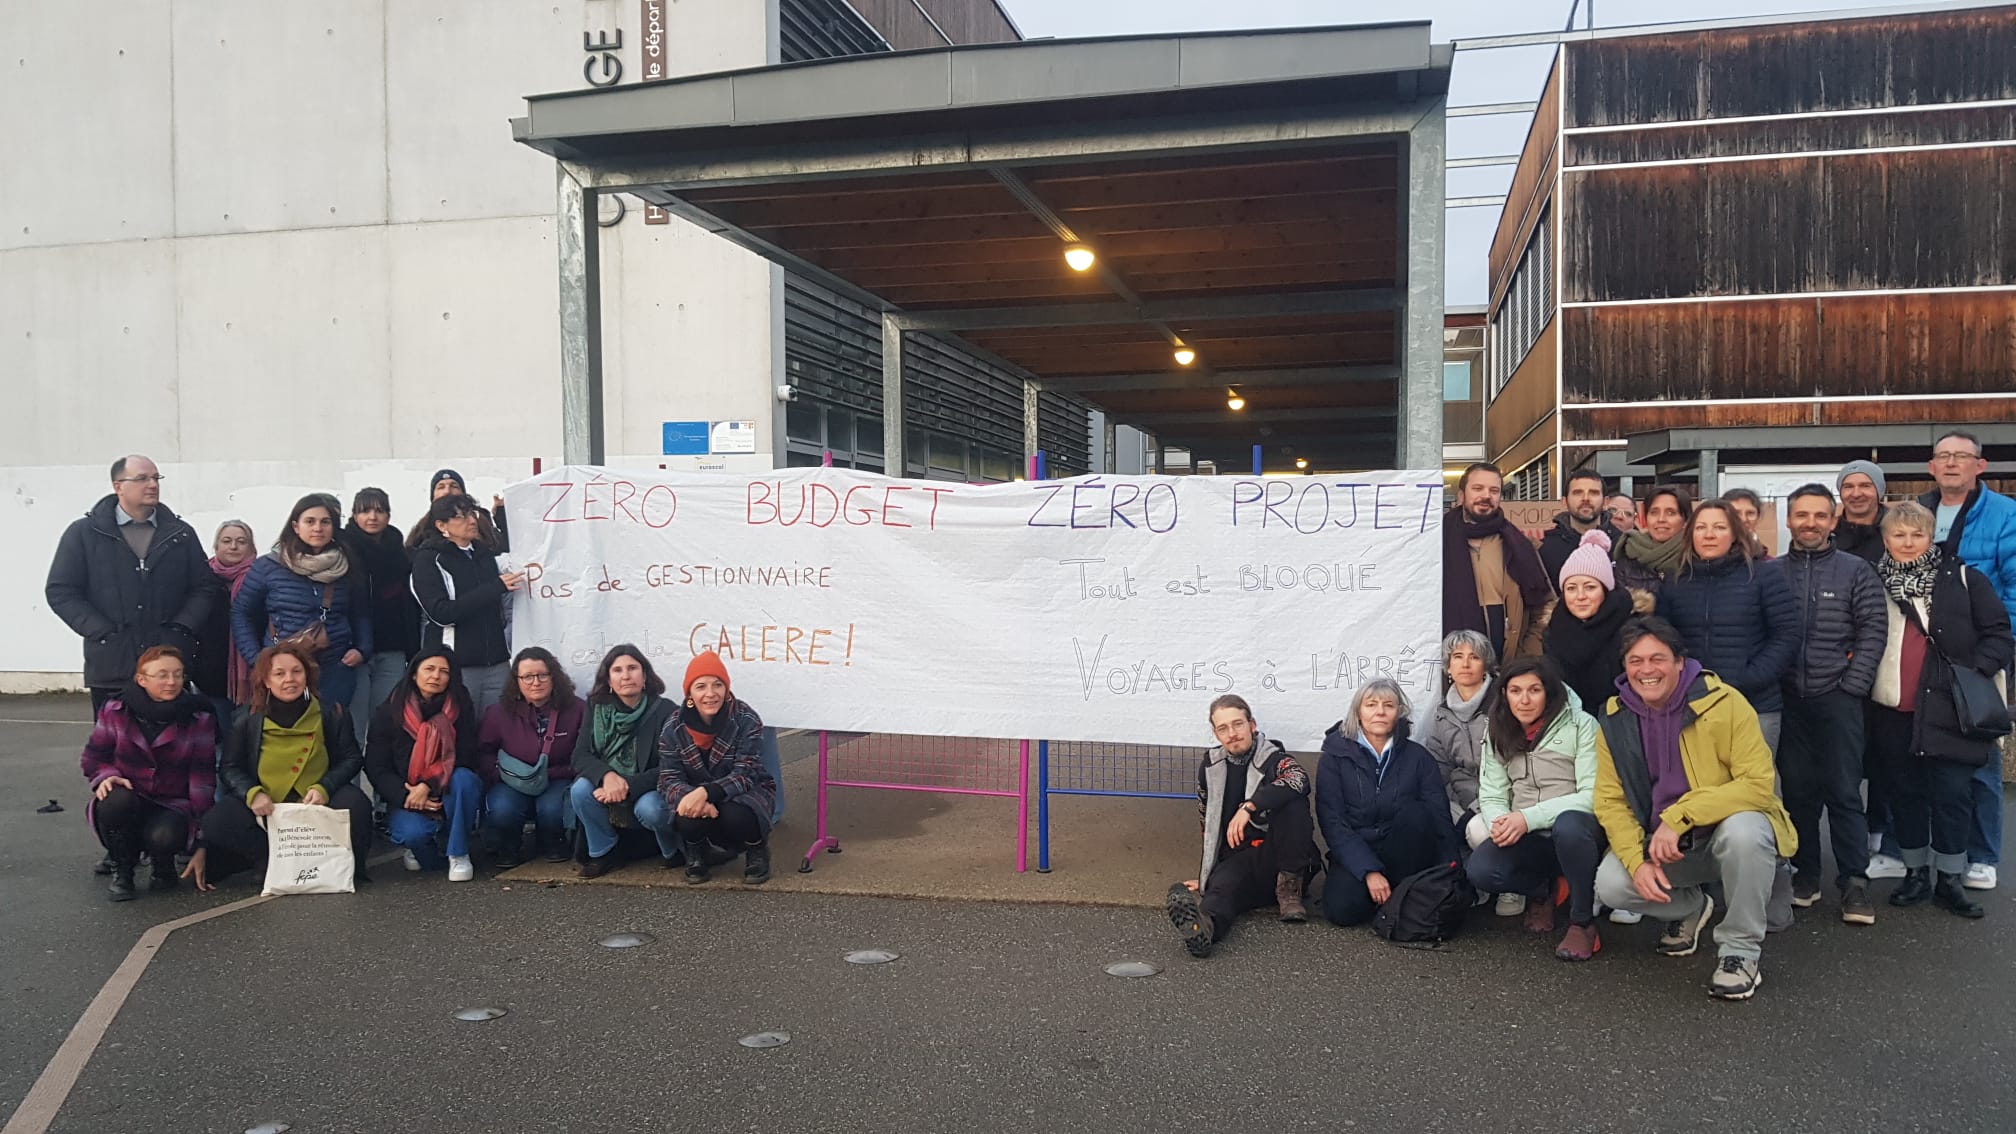 GE
le départ
ZÉRO BUDGET ZÉRO PROJET
Pas de GESTIONNAIRE
C'est la GALÈRE !
Tout est BLOQUÉ
VOYAGES à L'ARRÊT
MODE
Rab
eurescal
Parent d'élève
fcpe